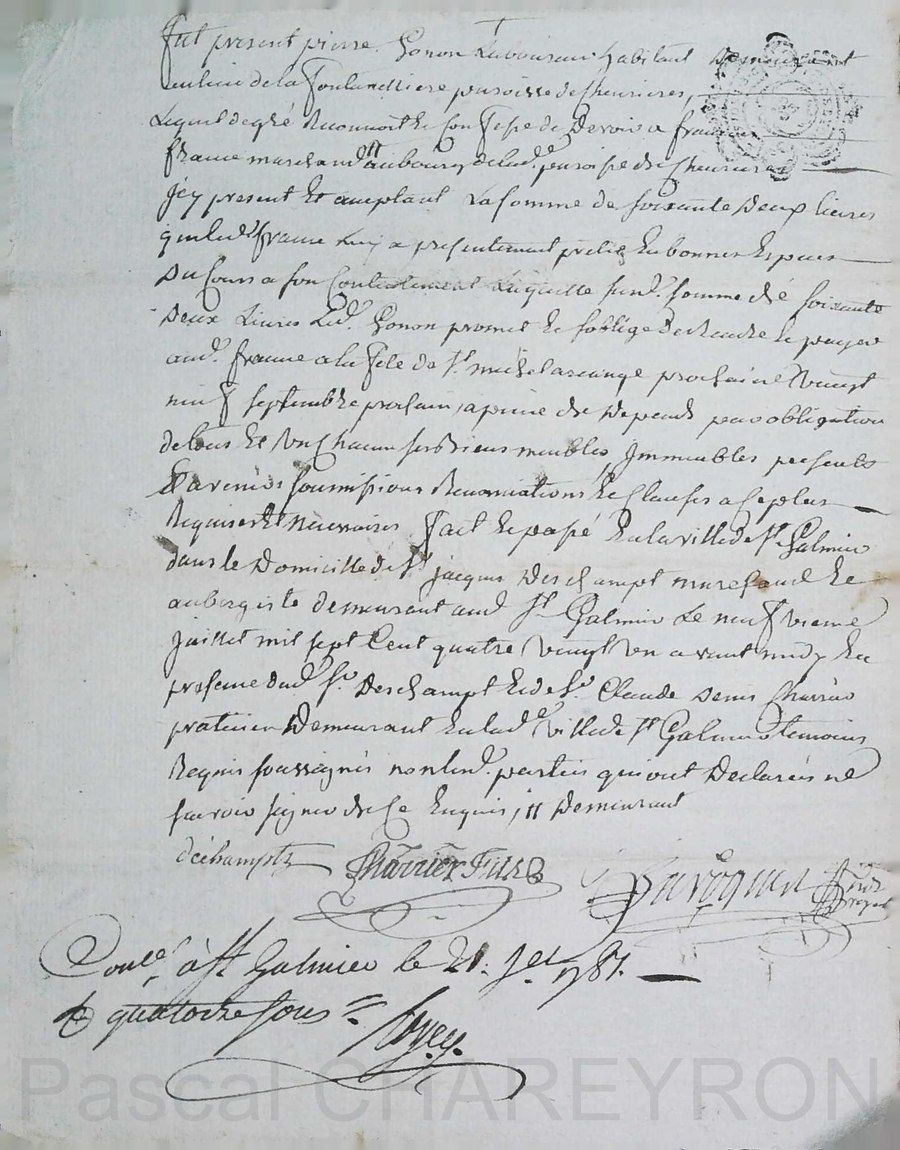 fut present pierre Gonon Laboureur habitant Demeurant
au lieu de la Foulandtiere paroisse de Chevrieres,
Lequel de gré Reconnoit et Confesse de Devoir a
france marchand au bourg de lad.e paroisse de Chevrieres
Jcy present Et aceptant La somme de soixante Deux livres
que led.t france Luy a presentement pretée En bonnes Especes
Du Cours a son Contentement Laquelle susd. somme de soixante
Deux Livres Led. Gonon promet et s'oblige de Rendre et payer
aud. france a la fete de St. michel arcange prochaine Vingt
neuf septembre prochain, a peine de Depends par obligation
de tous Et Un Chacun ses Biens meubles, Jmmeubles presents
Et avenirs soumissions Renonciations et Clauses a Ce plus
Requises Et necessaires fait et passé En la ville de St. Galmier
dans le Domicille de Sr. jacques Deschampt marchand et
aubergiste demeurant aud. St. Galmier Le neufvieme
Juillet mil sept Cent quatre Vingt Un avant midy En
presence dud. Sr. Deschampt et de Sr. Claude Denis Charrier
praticien Demeurant En lad.e ville de St. Galmier temoins
Requis soussignés non lesd. parties qui ont Declarées ne
savoir signer de Ce Enquis, Demeurant
déchamptz Charrier Fils
not. royal
Con.lé à St. Galmier le 21. Jet 1781.
R quatorze sous
Pascal CHAREYRON